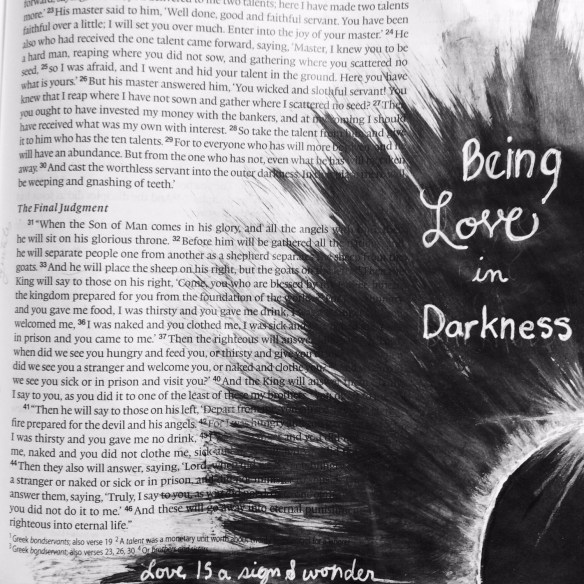 forward, saying, delivered to me two talents; here I have made two talents
more.' 23 His master said to him, 'Well done, good and faithful servant. You have been
faithful over a little; I will set you over much. Enter into the joy of your master.' 24 He
also who had received the one talent came forward, saying, 'Master, I knew you to be
a hard man, reaping where you did not sow, and gathering where you scattered no
seed, 25 so I was afraid, and I went and hid your talent in the ground. Here you have
what is yours.' 26 But his master answered him, 'You wicked and slothful servant! You
knew that I reap where I have not sown and gather where I scattered no seed? 27 Then
you ought to have invested my money with the bankers, and at my coming I should
have received what was my own with interest. 28 So take the talent from him and give
it to him who has the ten talents. 29 For to everyone who has will more be given, and he
will have an abundance. But from the one who has not, even what he has will be taken
away. 30 And cast the worthless servant into the outer darkness. In that place there will
be weeping and gnashing of teeth.'
The Final Judgment
31 "When the Son of Man comes in his glory, and all the angels with
he will sit on his glorious throne. 32 Before him will be gathered all the
he will separate people one from another as a shepherd separates the sheep from the
goats. 33 And he will place the sheep on his right, but the goats on the
King will say to those on his right, 'Come, you who are blessed by
the kingdom prepared for you from the foundation of the world.
and you gave me food, I was thirsty and you gave me drink, I
welcomed me, 36 I was naked and you clothed me, I was sick and
in prison and you came to me.' 37 Then the righteous will answer
when did we see you hungry and feed you, or thirsty and give you
did we see you a stranger and welcome you, or naked and clothe you?
we see you sick or in prison and visit you?' 40 And the King will answer
I say to you, as you did it to one of the least of these my brothers,
41 "Then he will say to those on his left, 'Depart from
fire prepared for the devil and his angels. 42 For I was hungry
I was thirsty and you gave me no drink, 43 I and you
me, naked and you did not clothe me, sick
44 Then they also will answer, saying, 'Lord, when
a stranger or naked or sick or in prison,
answer them, saying, 'Truly, I say to you, as you
you did not do it to me.' 46 And these will go away into eternal punishment
righteous into eternal life."
1 Greek bondservants; also verse 19 2 A talent was a monetary unit worth about
3 Greek bondservant; also verses 23, 26, 30 4 Or brothers and sisters
Being
Love
in
Darkness
Love is a sign & wonder